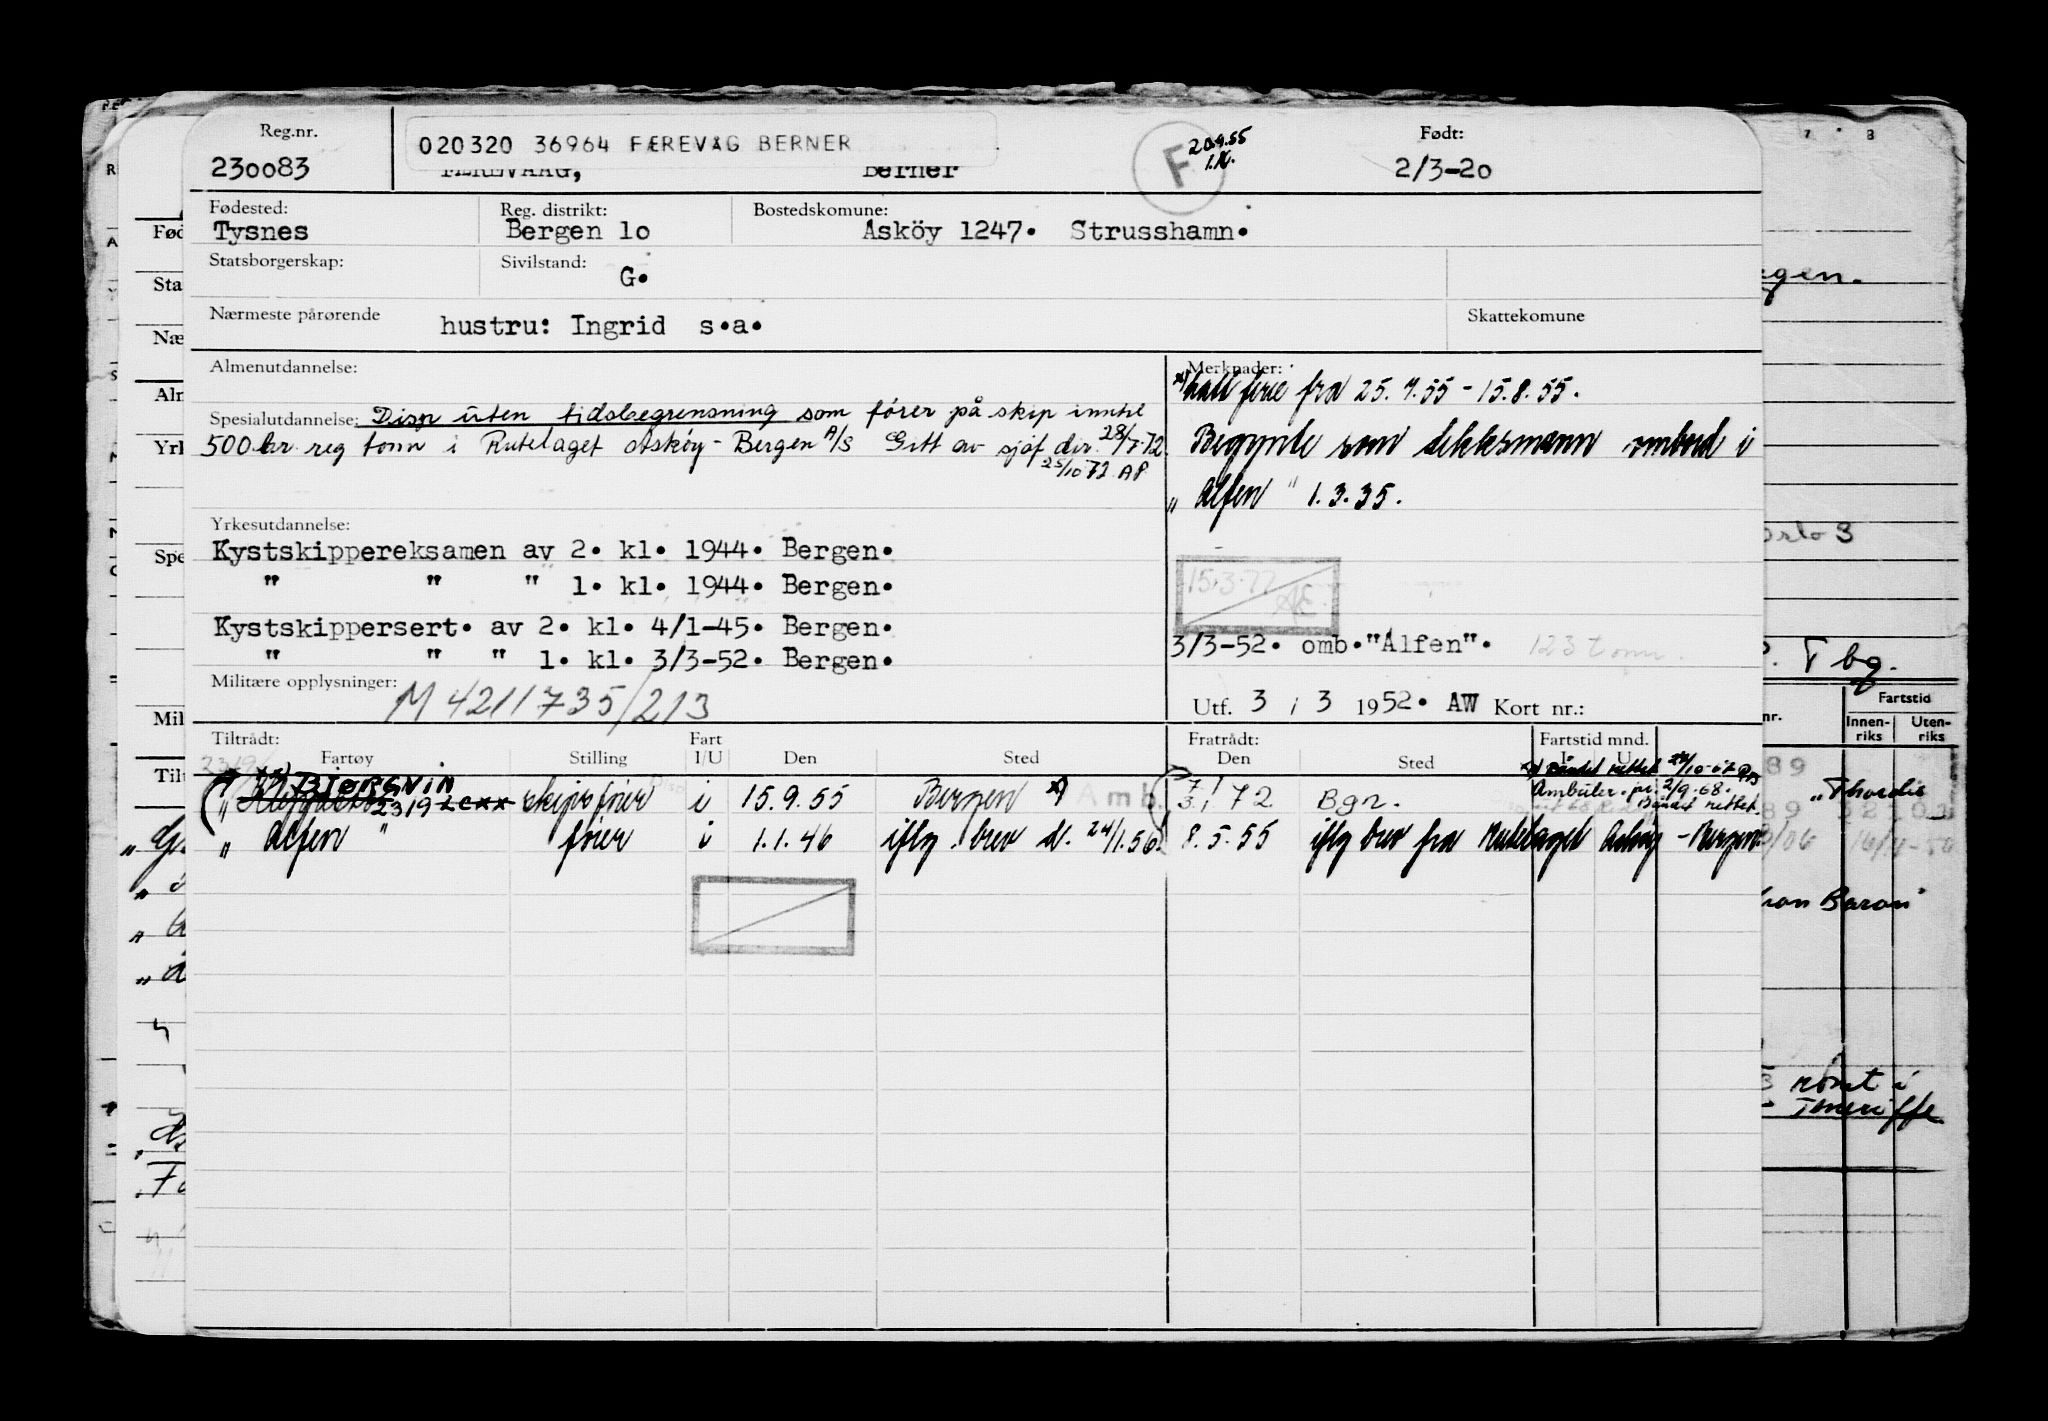 Reg.nr. Født:
020320 36964 FÆREVÅG BERNER
230083 FÆREVAAG, Berner F 20.9.55 2/3-20
Fødested: Reg. distrikt: Bostedskomune:
Tysnes Bergen 10 Asköy 1247. Strusshamn.
Statsborgerskap: Sivilstand:
G.
Nærmeste pårørende hustru: Ingrid s.a. Skattekomune
Almenutdannelse:
Spesialutdannelse: Disp uten tidsbegrensning som fører på skip inntil
500 br. reg tonn i Rutelaget Askøy - Bergen A/S Gitt av sjøf dir. 28/7-72.
25/10 72 AP
Yrkesutdannelse:
Kystskippereksamen av 2. kl. 1944. Bergen.
" " " 1. kl. 1944. Bergen.
Kystskippersert. av 2. kl. 4/1-45. Bergen.
" " " 1. kl. 3/3-52. Bergen.
Militære opplysninger: M 4211735/213
Merknader:
x) hatt ferie fra 25.7.55 - 15.8.55.
Begynte som dekksmann ombord i
„Alfen" 1.3.35.
15.3.77 AE
3/3-52. omb. "Alfen". 123 tonn.
Utf. 3 / 3 1952. AW Kort nr.:
Tiltrådt: Fart Fratrådt: Fartstid mnd.
Fartøy Stilling I/U Den Sted Den Sted I U
2319 BJØRGVIN
2319 LCXX skipsfører i 15.9.55 Bergen x) Amb. 7/1 3/1 72 Bgr.
x) Båndet rettet 24/10-67
Ambuler. pr. 2/9.68.
Båndet rettet.
„Alfen" fører i 1.1.46 iflg. brev d. 24/1.56. 8.5.55 iflg brev fra Rutelaget Askøy - Bergen
Fartstid
Innen-riks Uten-riks
Oslo 3
Tbg.
„Thordis
Baron"
rømt i
Teneriffe